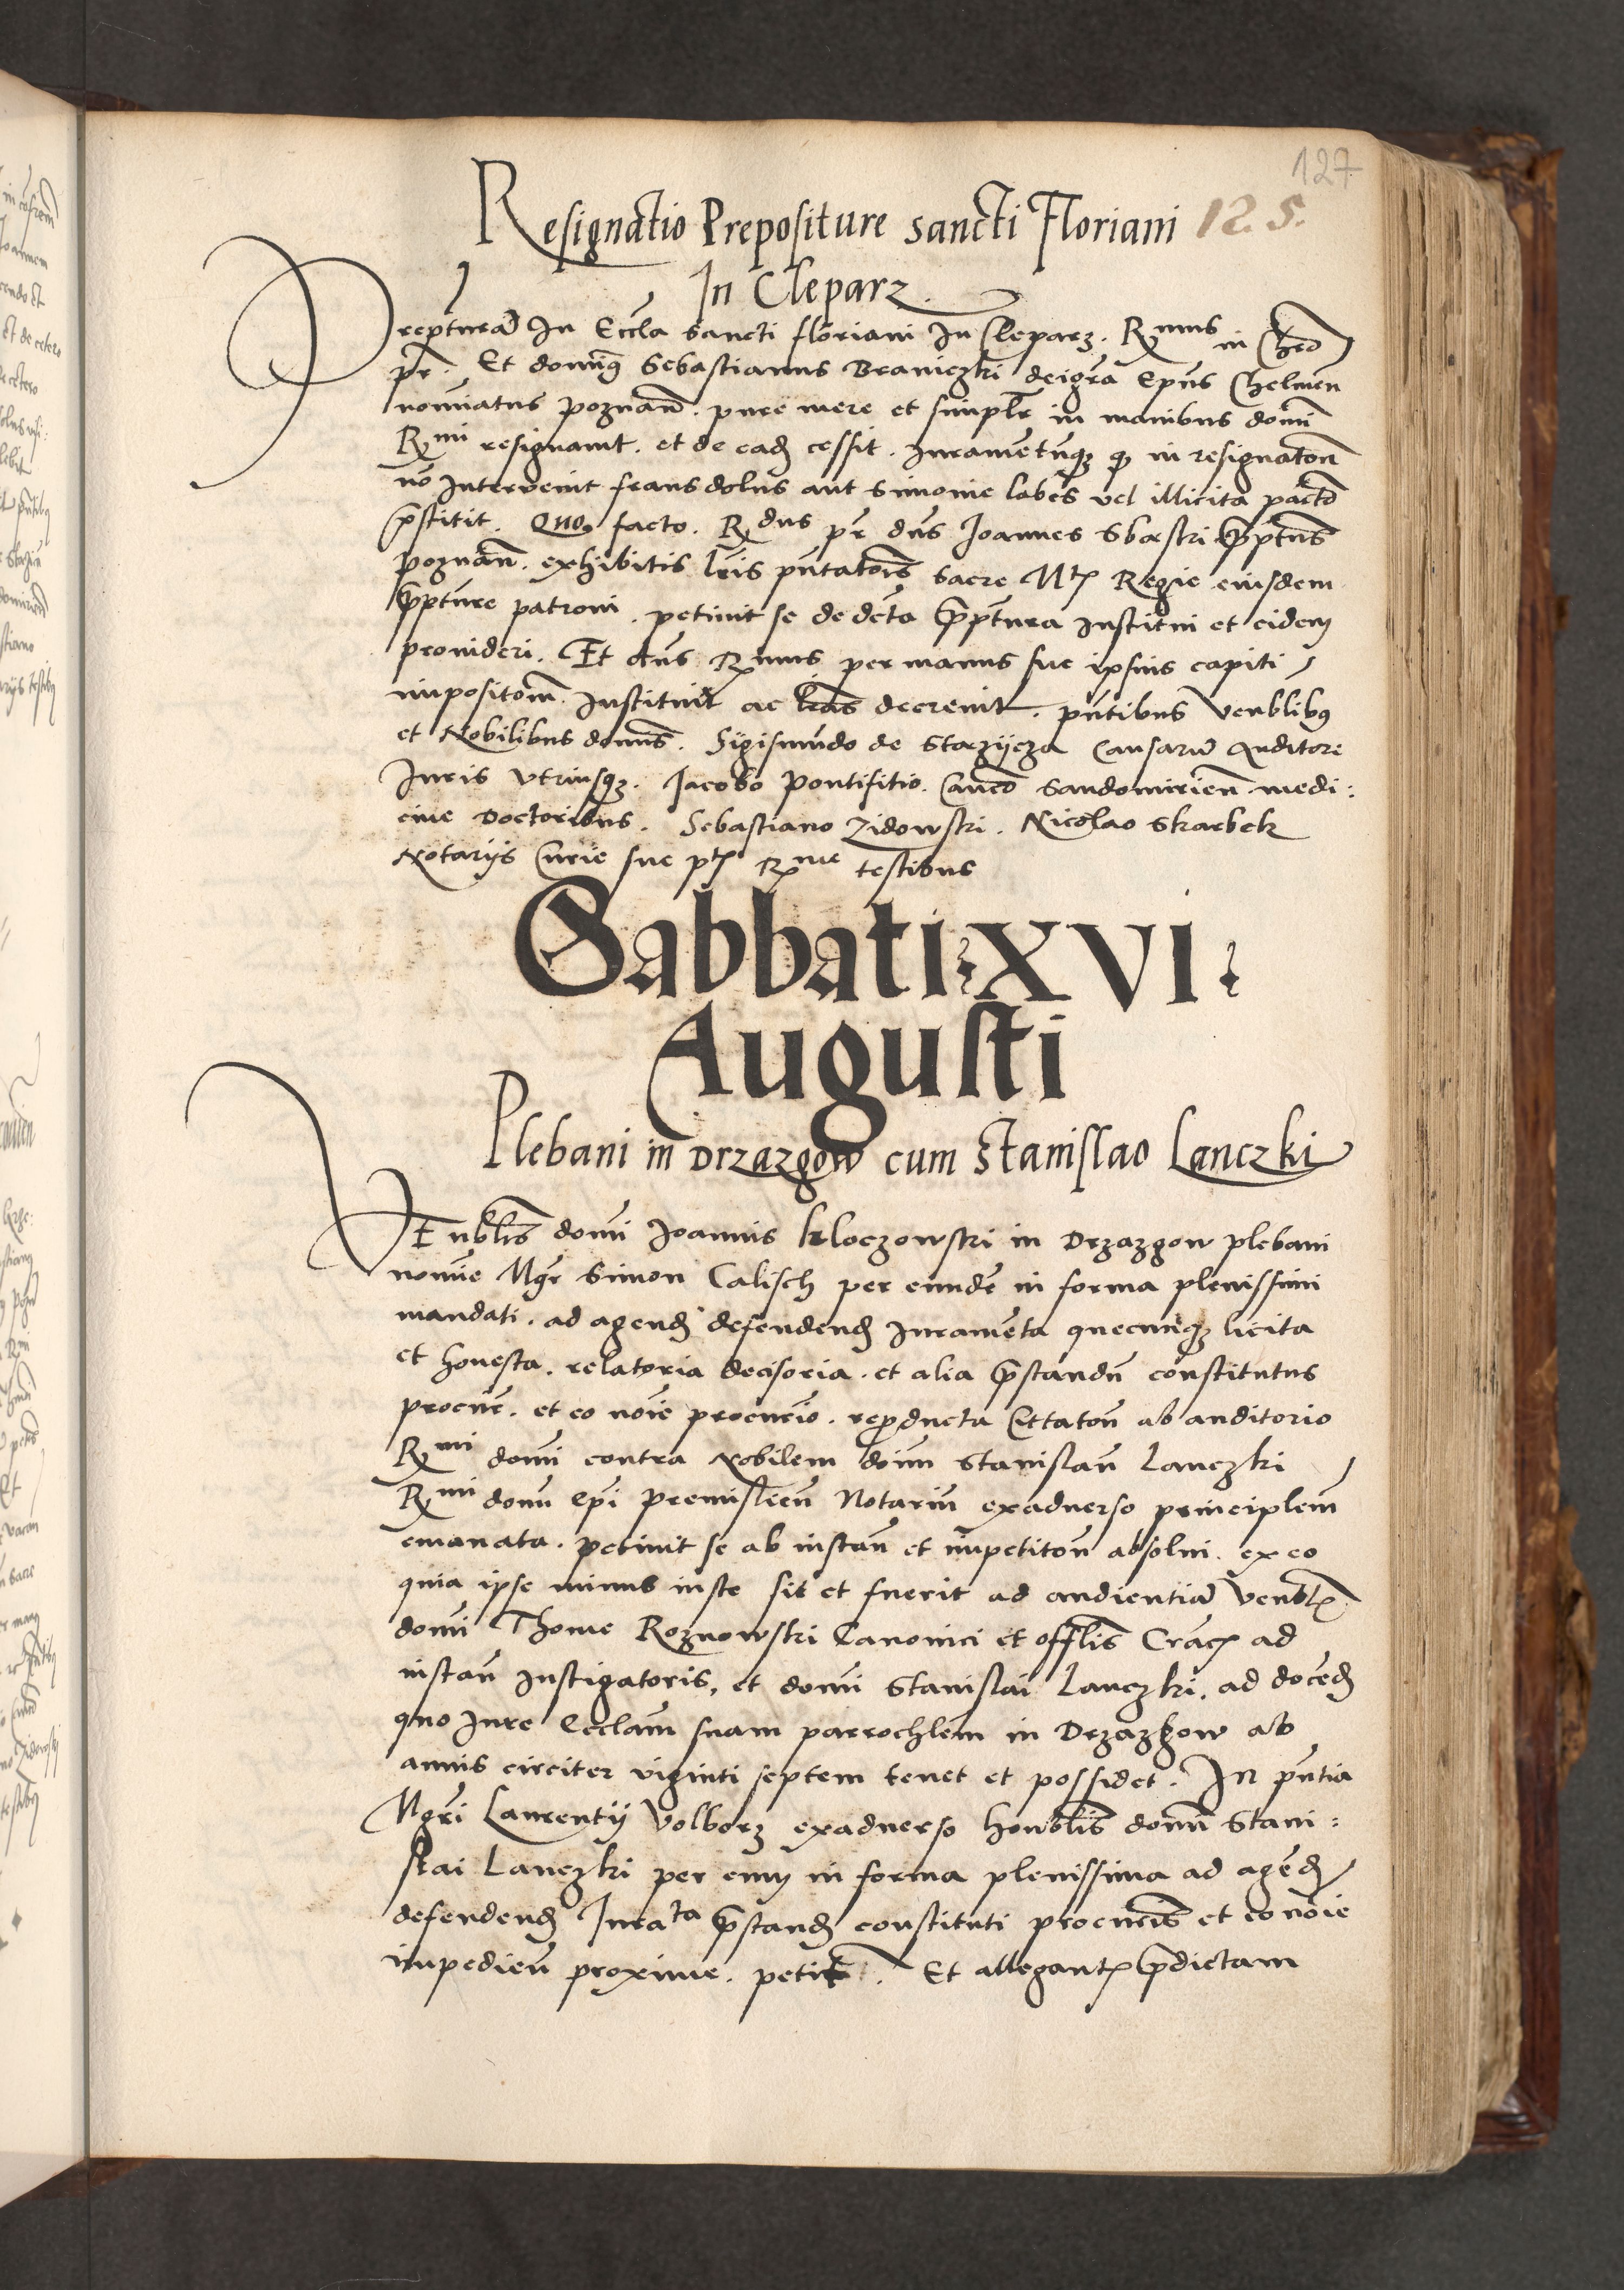 127
Resignatio Prepositure sancti Floriani 125.
In Cleparz.
Prepturā In Eccla Sancti floriani In Cleparz. Rmus in Chro
pr. Et domng Sebastianus Braniczki deigra Epus Chelmen
nominatus poznan. pure mere et simplr in manibus domi
Rmi resignavit. et de eadē cessit. Iuramentumq3 q in resignatōn
nō Intervenit fraus dolus aut simonie labes vel illicita pacto
prstitit. Quo facto. Rdus pr dns Ioannes Sbąski prptus
poznan. exhibitis lris pntatōis sacre Mtis Regie eiusdem
prpture patroni. petivit se de dcta prptura Institui et eidem
provideri. Et dns Rmus per manus sue ipsius capiti
impositōm Instituit ac lras decrevit. pntibus Venblibg
et Nobilibus domis. Sigismundo de Stęzycza Causarū Auditore
Iuris Vtriusq3. Iacobo Pontifitio. Canco Sandomirien medi:
cine Doctoribus. Sebastiano Zidowski. Nicolao Skarbek
Notarijs Curie sue ptis Rme testibus
Sabbati XVI
Augusti
Plebani in Drzazgow cum Stanislao Lanczki
VEnblis domi Ioannis kloczowski in Drzazgow plebani
nomīe Mgr Simon Calisch per eundē in forma plenissimi
mandati. ad agendū defendendū Iuramenta quecunq3 licita
et honesta. relatoria decisoria. et alia prstandū constitutus
procur. et eo noīe procurio. reproducta Cittatōn ab auditorio
Rmi domi contra Nobilem dōnu Stanislaū Lanczki
Rmi domi epi premislien Notariū exadverso principlem
emanata. petivit se ab instan et impetitōn absolvi. ex eo
quia ipse minus iuste sit et fuerit ad audientiā Venblis
domi Thome Roznowski Canonici et offlis Crac ad
instan Instigatoris, et domi Stanislai Lanczki. ad docendū
quo Iure Ecclam suam parrochlem in Drzazgow ab
annis circiter viginti septem tenet et possidet. In pntia
Mgri Laurentij Volborz exadverso honblis domi Stani:
slai Lanczki per eum in forma plenissima ad agendū
defendendū Iurata prstandū constituti procuris et eo noīe
impedien proxime. petit. Et allegantis prdictam